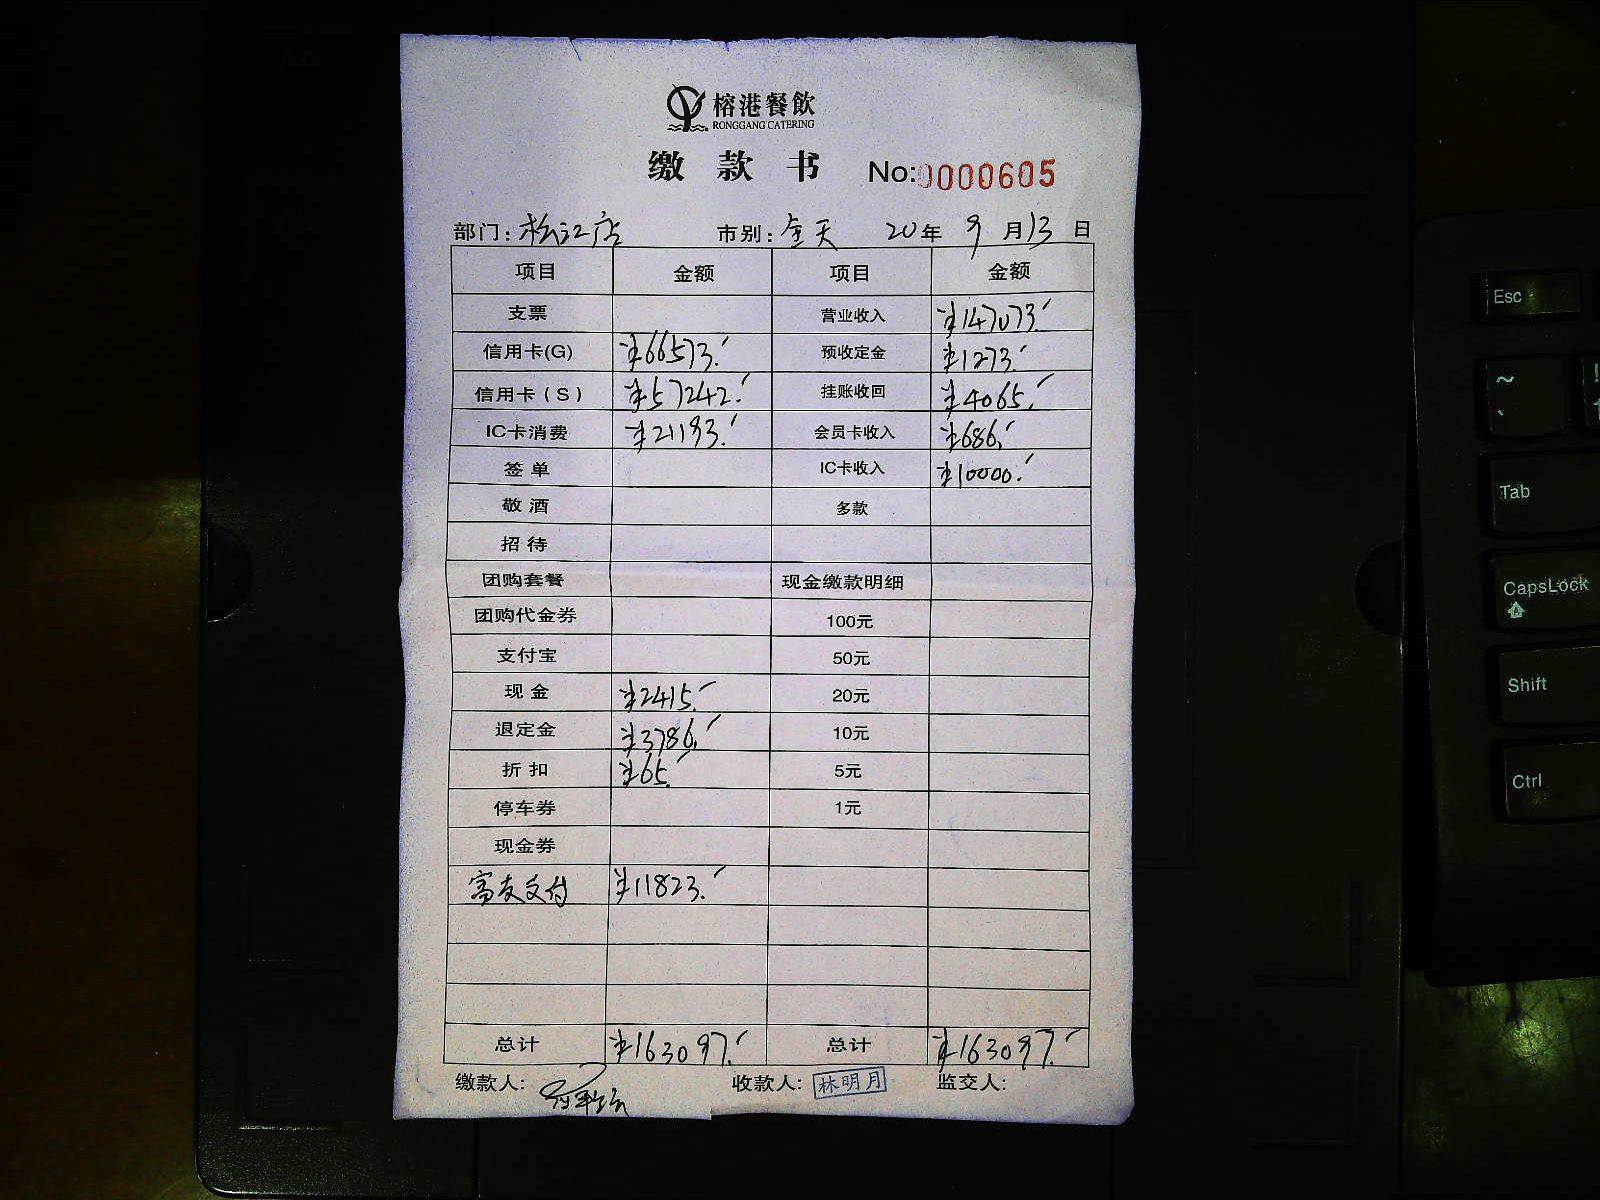 榕港餐飲
RONGGANG CATERING
缴款书 No:0000605
部门: 松江店 市别: 全天 20年 9月13日
项目 金额 项目 金额
支票 营业收入 ¥147073.
信用卡(G) ¥66573. 预收定金 ¥1273.
信用卡(S) ¥57242. 挂账收回 ¥4065.
IC卡消费 ¥21193. 会员卡收入 ¥686.
签单 IC卡收入 ¥10000.
敬酒 多款
招待
团购套餐 现金缴款明细
团购代金券 100元
支付宝 50元
现金 ¥2415. 20元
退定金 ¥3786. 10元
折扣 ¥65. 5元
停车券 1元
现金券
富友支付 ¥11823.
总计 ¥163097. 总计 ¥163097.
缴款人: 收款人: 林明月 监交人:
Esc
~
、
!
Tab
CapsLock
Shift
Ctrl